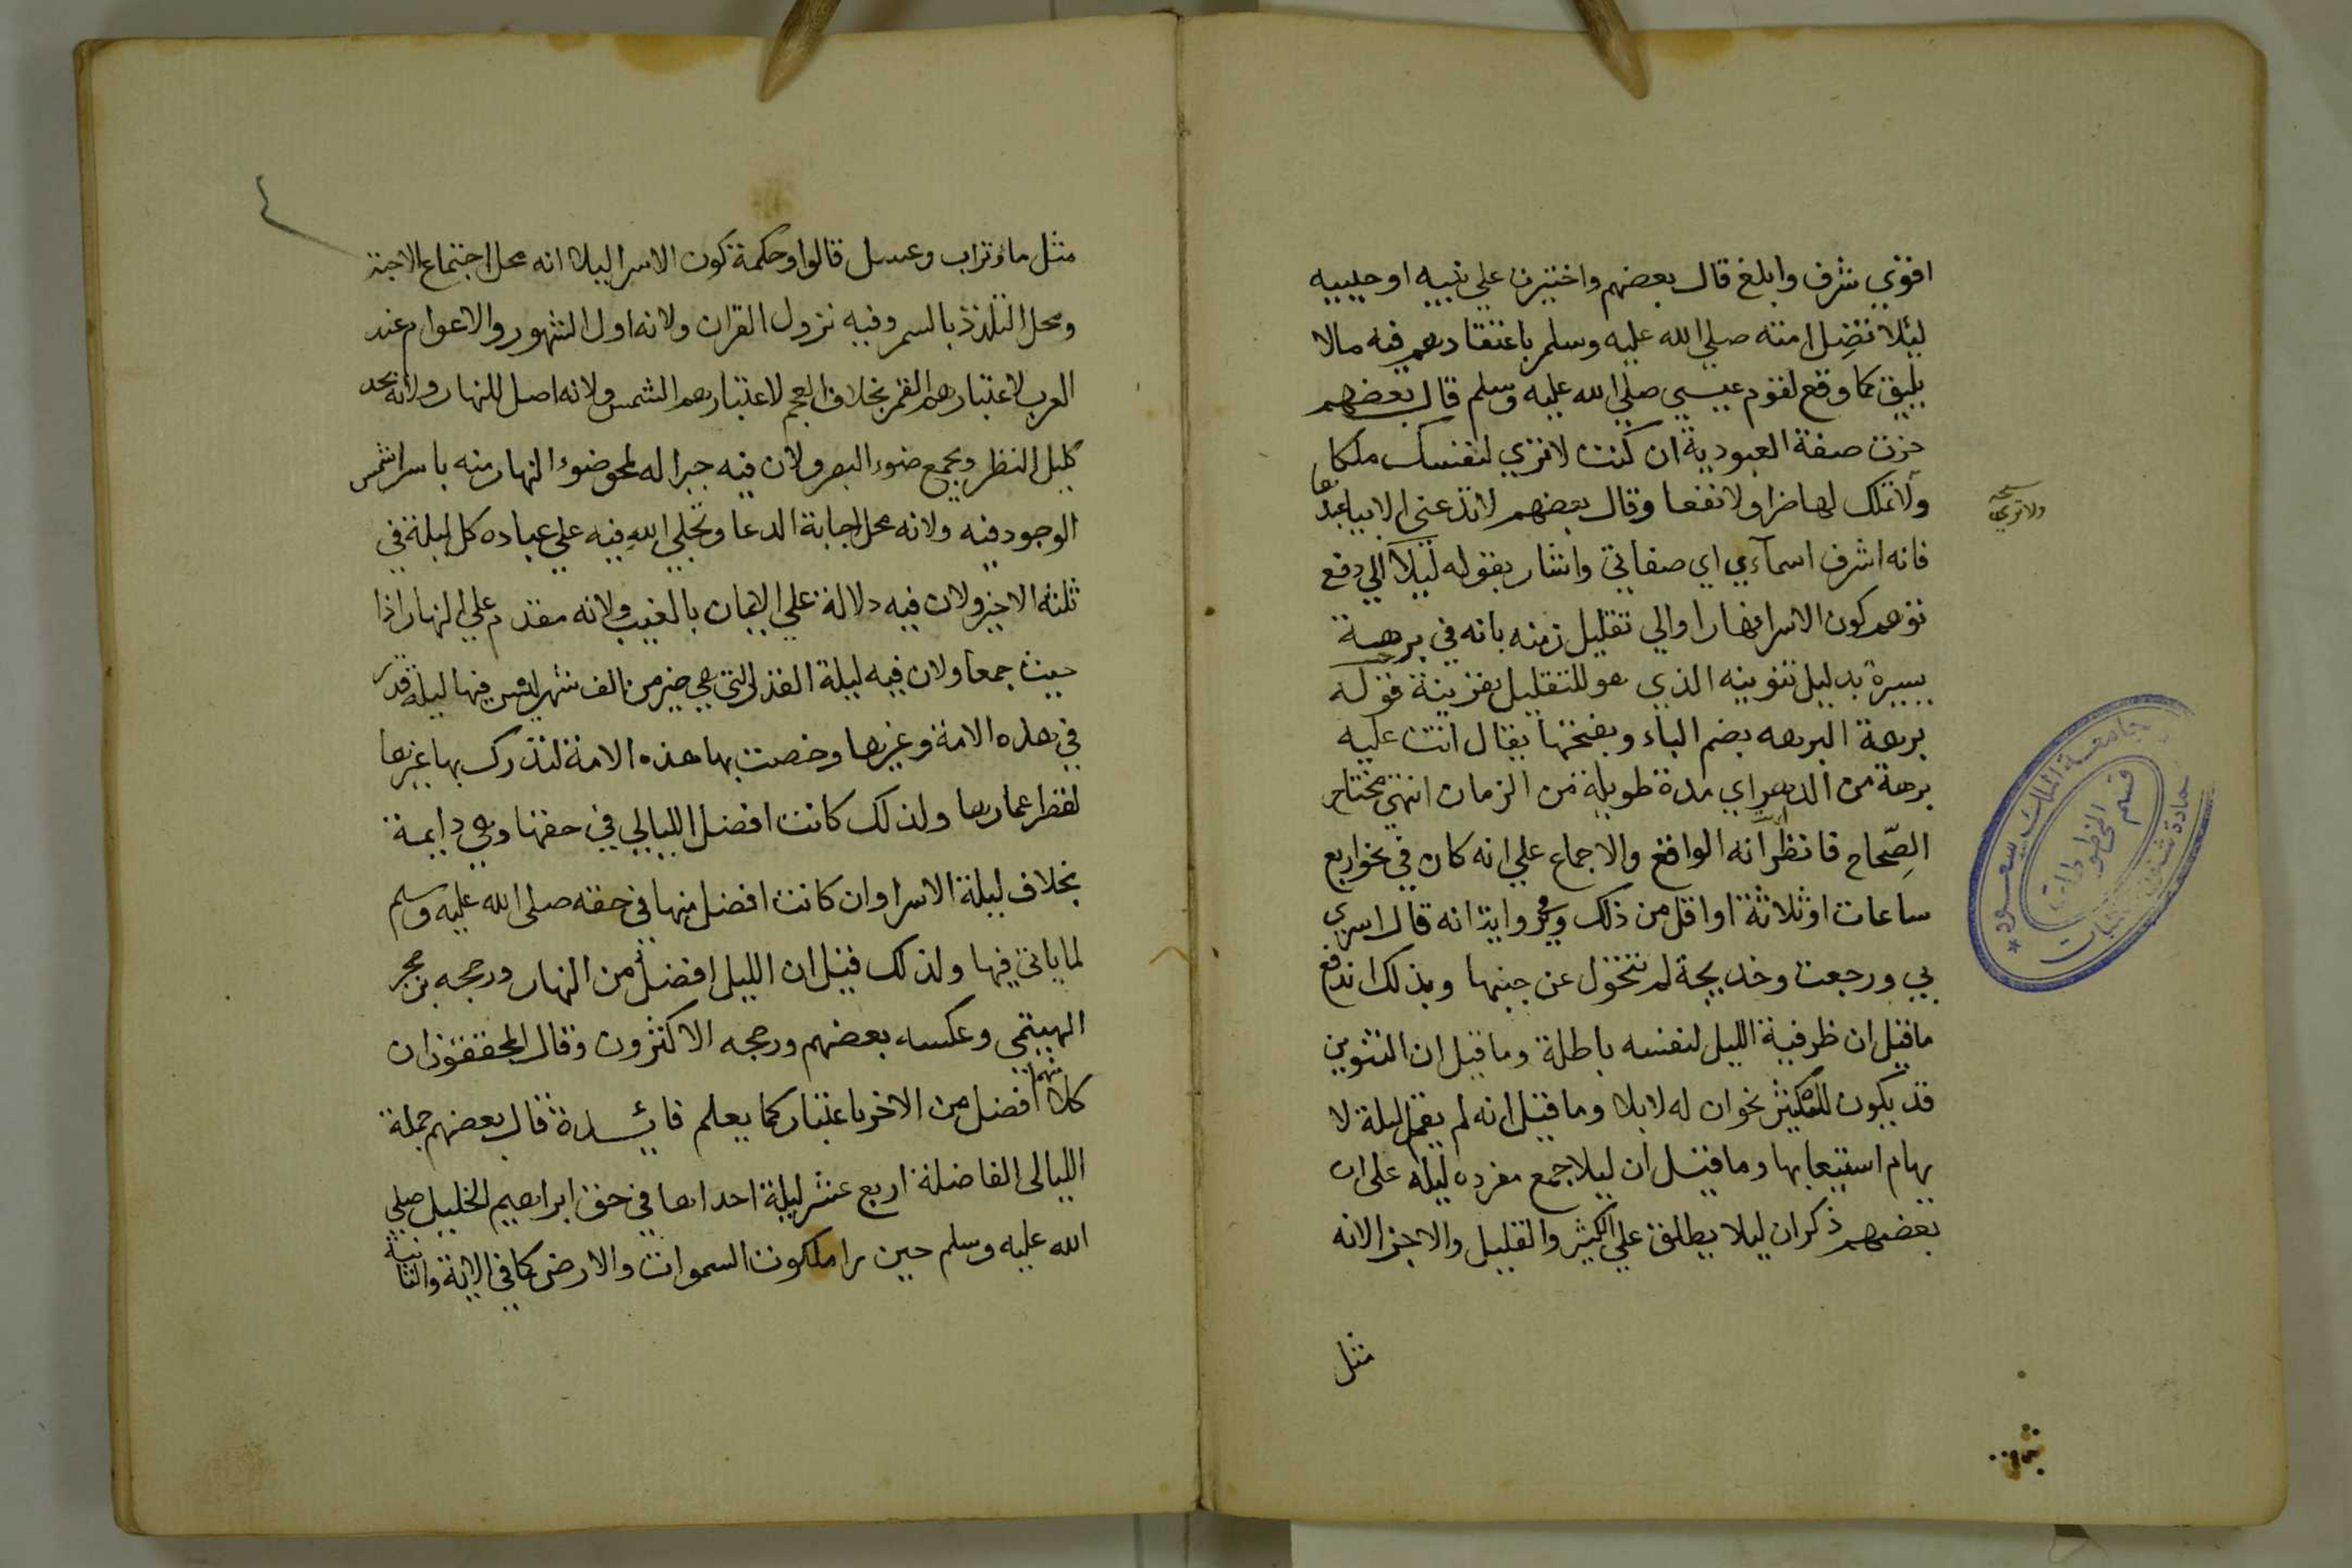 اقوي شرف وابلغ قال بعضهم واختيرت علي نبيه او حبيبه
ليلا تضل امته صلي الله عليه وسلم باعتقادهم فيه مالا
يليق كما وقع لقوم عيسي صلي الله عليه وسلم قال بعضهم
حزت صفة العبودية ان كنت لا تري لنفسك ملكا
ولا تملك لها ضرا ولا نفعا وقال بعضهم لا تدعني الا بيا عبدها
نسخه ولا تري
فانه اشرف اسمآءي اي صفاتي واشار بقوله ليلا الي دفع
توهم كون الاسرا نهارا والي تقليل زمنه بانه في برهة
يسيرة بدليل تنوينه الذي هو للتقليل بقرينة قوله
برهة البرهه بضم الباء وبفتحها يقال اتت عليه
برهة من الدهر اي مدة طويلة من الزمان انتهي مختار
الصِّحاح فانظر انه الواقع والاجماع علي انه كان في نحو اربع
ساعات او ثلاثة او اقل من ذلك وفي رواية انه قال اسري
بي ورجعت وخديجة لم تتحول عن جنبها وبذلك اندفع
ما قيل ان ظرفية الليل لنفسه باطلة وما قيل ان التنوين
قد يكون للتكثير نحو ان له لابلا وما قيل انه لم يقل ليلة لا
يهام استيعابها وما قيل ان ليلا جمع مفرده ليلة علي ان
بعضهم ذكر ان ليلا يطلق علي الكثير والقليل والاجزا لانه
مثل
جامعة الملك سعود
قسم المخطوطات
عمادة شئون المكتبات
مثل ماء وتراب وعسل قالوا وحكمة كون الاسرا ليلا انه محل اجتماع الاحبة
ومحل التلذذ بالسمر وفيه نزول القران ولانه اول الشهور والاعوام عند
العرب لاعتبارهم القمر بخلاف العجم لاعتبارهم الشمس ولانه اصل للنهار ولانه يحد
كليل النظر ويجمع ضوء البصر ولان فيه جبرا له لمحو ضوء النهار منه باسرا شمس
الوجود فيه ولانه محل اجابة الدعا وتجلي الله فيه علي عباده كل ليلة في
ثلثه الاخير ولان فيه دلالة علي الايمان بالغيب ولانه مقدم علي النهار اذا
حيث جمعا ولان فيه ليلة القدر التي هي خير من الف شهر ليس فيها ليلة قدر
في هذه الامة وغيرها وخصت بها هذه الامة لتدرك بها غيرها
لقصر اعمارها ولذلك كانت افضل الليالي في حقها وهي دايمة
بخلاف ليلة الاسرا وان كانت افضل منها في حقه صلي الله عليه وسلم
لما ياتي فيها ولذلك قيل ان الليل افضل من النهار ورجحه بن حجر
الهيتمي وعكسه بعضهم ورجحه الاكثرون وقال المحققون ان
كلا منهما افضل من الاخر باعتبار كما يعلم فائدة قال بعضهم جملة
الليالي الفاضلة اربع عشر ليلة احداها في حق ابراهيم الخليل صلي
الله عليه وسلم حين را ملكوت السموات والارض كما في الاية والثانية